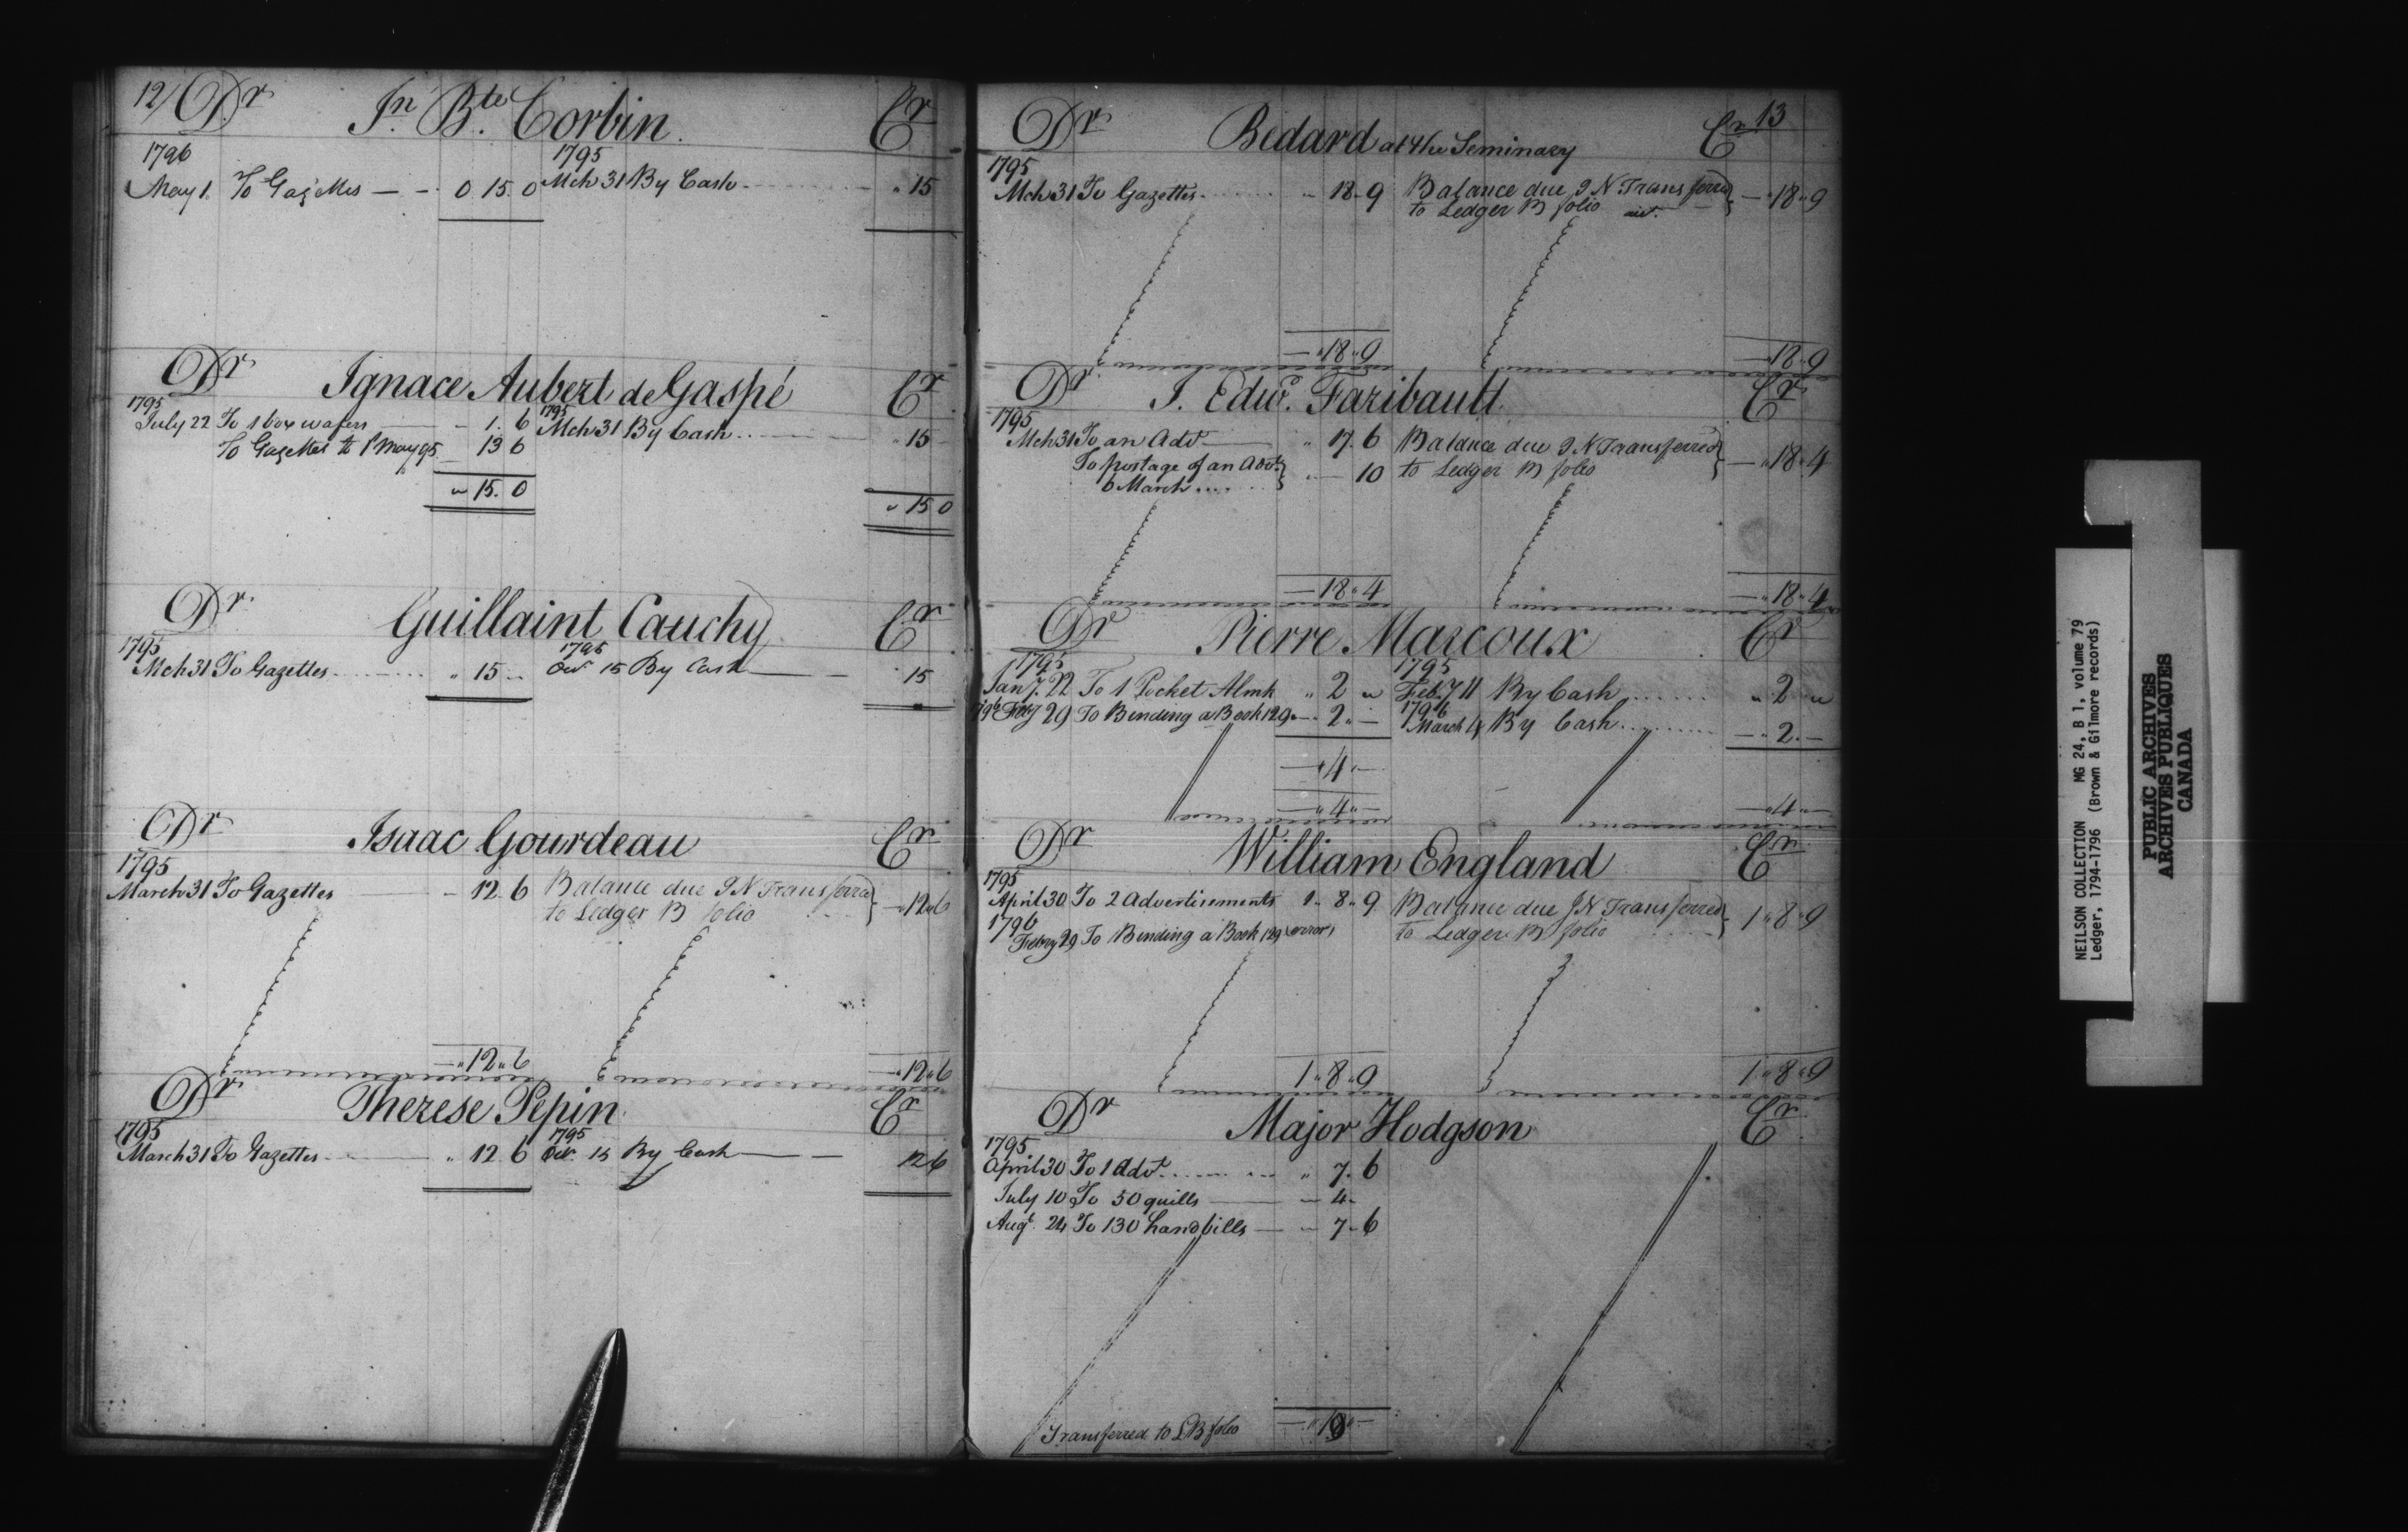 12/ Dr Jn Bte Corbin. Cr
1796 1795
May 1. To Gazettes — - 0 15. 0 Mch 31 By Cash - - - " 15
Dr Ignace Aubert de Gaspé Cr
1795 1795
July 22 To 1 box wafers — - 1. 6 Mch 31 By Cash .. — " 15 -
To Gazettes to 1 may 95. 13 6
" 15. 0
" 15 0
Dr Guillaint Cauchy Cr
1795 1795
Mch 31 To Gazettes - - - " 15 - 15 By Cash — 15
Dr Isaac Gourdeau Cr
1795
March 31 To Gazettes — - 12. 6 Balance due J N Transferred } — " 12 " 6
to Ledger B folio
— " 12 " 6 — " 12 " 6
Dr Therese Pepin Cr
1795 1795
March 31 To Gazettes - - — " 12. 6 15 By Cash — 12 6
Dr Bedard at the Seminary Cr 13
1795
Mch 31 To Gazettes - - - " 18 - 9 Balance due J N Transferred } — " 18 " 9
to Ledger B folio
— " 18 " 9 — 18 " 9
Dr J. Edwd. Faribault Cr
1795
Mch 31 To an Advt — " 17. 6 Balance due J N Transferred } — " 18 " 4
To postage of an Advt } " — 10 to Ledger B folio
6 March ....
— 18 " 4 — " 18 " 4
Dr Pierre Marcoux Cr
1795 1795
Jany. 22 To 1 Pocket Almk " 2 " Feby 11 By Cash ...... " 2 "
1796 Feby 29 To Binding a Book 129 — " 2 " — 1796 March 4 By Cash ...... — " 2. —
— " 4 " —
— " 4 " — — " 4 " —
Dr William England Cr
1795
April 30 To 2 Advertisements 1 - 8 " 9 Balance due J N Transferred } 1 " 8 " 9
1796 to Ledger B folio
Febry 29 To Binding a Book 129 (error)
1 " 8 " 9 1 " 8 " 9
Dr Major Hodgson Cr
1795
April 30 To 1 Advt ...... " 7. 6
July 10 To 50 quills — - 4 -
Augt. 24 To 130 handbills — - 7 - 6
Transferred to L B folio — " 19 " —
NEILSON COLLECTION MG 24, B 1, volume 79
Ledger, 1794-1796 (Brown & Gilmore records)
PUBLIC ARCHIVES
ARCHIVES PUBLIQUES
CANADA